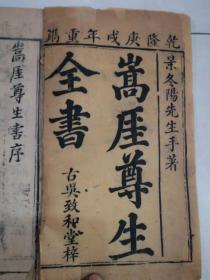 乾隆庚戌年重鐫
景冬陽先生手著
嵩厓尊生
全書
古吳致和堂梓
嵩厓尊生書序